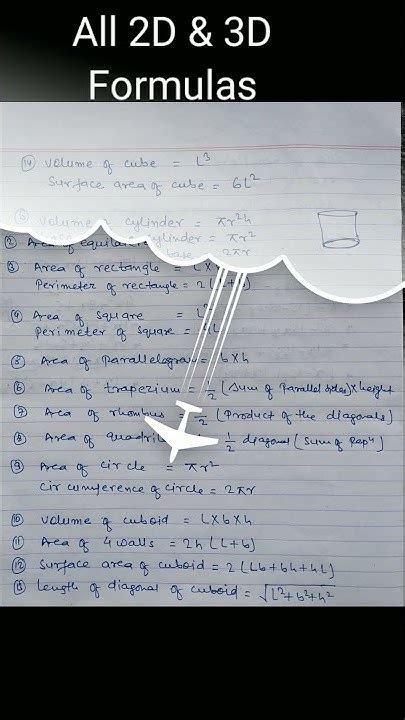 All 2D & 3D
Formulas
⑭ Volume of cube = L³
Surface area of cube = 6L²
Volume cylinder = πr²h
cylinder = πr²
② Area of equilate base 2πr
③ Area of rectangle = L×
Perimeter of rectangle = 2(L+b)
④ Area of Square = L
Perimeter of Square = 4L
⑤ Area of Parallelogram = b×h
⑥ Area of trapezium = 1/2 (Sum of Parallel sides)×height
⑦ Area of rhombus = 1/2 (Product of the diagonals)
⑧ Area of quadril 1/2 diagonal (Sum of
⑨ Area of circle = πr²
Circumference of circle = 2πr
⑩ Volume of cuboid = L×b×h
⑪ Area of 4 walls = 2h(L+b)
⑫ Surface area of cuboid = 2(Lb+bh+hL)
⑬ Length of diagonal of cuboid = √L²+b²+h²